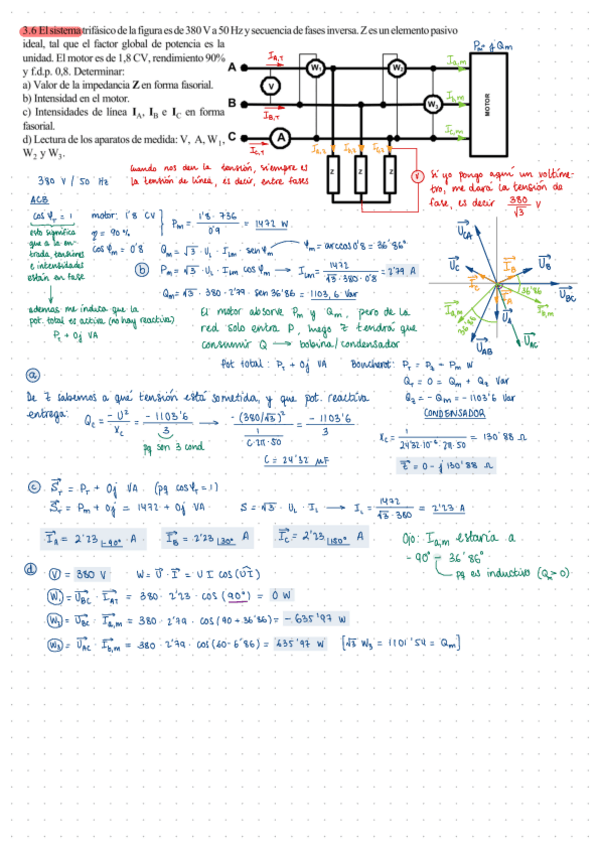 3.6 El sistema trifásico de la figura es de 380 V a 50 Hz y secuencia de fases inversa. Z es un elemento pasivo
ideal, tal que el factor global de potencia es la
unidad. El motor es de 1,8 CV, rendimiento 90%
y f.d.p. 0,8. Determinar:
a) Valor de la impedancia Z en forma fasorial.
b) Intensidad en el motor.
c) Intensidades de línea I_A, I_B e I_C en forma
fasorial.
d) Lectura de los aparatos de medida: V, A, W₁,
W₂ y W₃.
A
B
C
I_A,T
I_B,T
I_C,T
V
A
W₁
W₂
W₃
I_a,m
I_b,m
I_c,m
Pm y Qm
MOTOR
Z
Z
Z
V
Cuando nos den la tensión, siempre es
la tensión de línea, es decir, entre fases
Si yo pongo aquí un voltíme-
tro, me dará la tensión de
fase, es decir 380/√3 V
380 V / 50 Hz
ACB
cos φ_T = 1
esto significa
que a la en-
trada, tensiones
e intensidades
están en fase
además me indica que la
pot. total es activa (no hay reactiva)
P_T + 0j VA
motor: 1'8 CV
η = 90 %
cos φ_m = 0'8
P_m = 1'8 · 736 / 0'9 = 1472 W
Q_m = √3 · U_L · I_Lm · sen φ_m
φ_m = arccos 0'8 = 36'86°
b P_m = √3 · U_L · I_Lm cos φ_m → I_Lm = 1472 / √3 · 380 · 0'8 = 2'79 A
Q_m = √3 · 380 · 2'79 · sen 36'86 = 1103,6 Var
El motor absorve P_m y Q_m, pero de la
red solo entra P, luego Z tendrá que
consumir Q → bobina/condensador
U_CA
U_C
I_B
U_B
I_C
U_BC
36'86
I_A
U_A
U_AB
U_AC
Pot total: P_T + 0j VA Boucherot: P_T = P_z + P_m W
Q_T = 0 = Q_m + Q_z Var
Q_z = - Q_m = - 1103'6 Var
CONDENSADOR
a
De Z sabemos a qué tensión está sometida, y que pot. reactiva
entrega: Q_C = - U² / X_C = - 1103'6 / 3 → - (380/√3)² / 1 / C·2π·50 = - 1103'6 / 3
pq son 3 cond
C = 24'32 μF
X_C = 1 / 24'32·10⁻⁶·2π·50 = 130'88 Ω
Z = 0 - j 130'88 Ω
c S_T = P_T + 0j VA (pq cos φ_T = 1)
S_T = P_m + 0j = 1472 + 0j VA S = √3 · U_L · I_L → I_L = 1472 / √3 · 380 = 2'23 A
I_A = 2'23 |-90° A I_B = 2'23 |30° A I_C = 2'23 |150° A
Ojo: I_a,m estaría a
- 90° - 36'86°
pq es inductivo (Q_m > 0)
d V = 380 V W = U · I = U I cos (UI)
W₁ = U_BC · I_AT = 380 · 2'23 · cos (90°) = 0 W
W₂ = U_BC · I_a,m = 380 · 2'79 · cos (90 + 36'86) = - 635'97 W
W₃ = U_AC · I_b,m = 380 · 2'79 · cos (60 - 6'86) = 635'97 W [√3 W₃ = 1101'54 = Q_m]